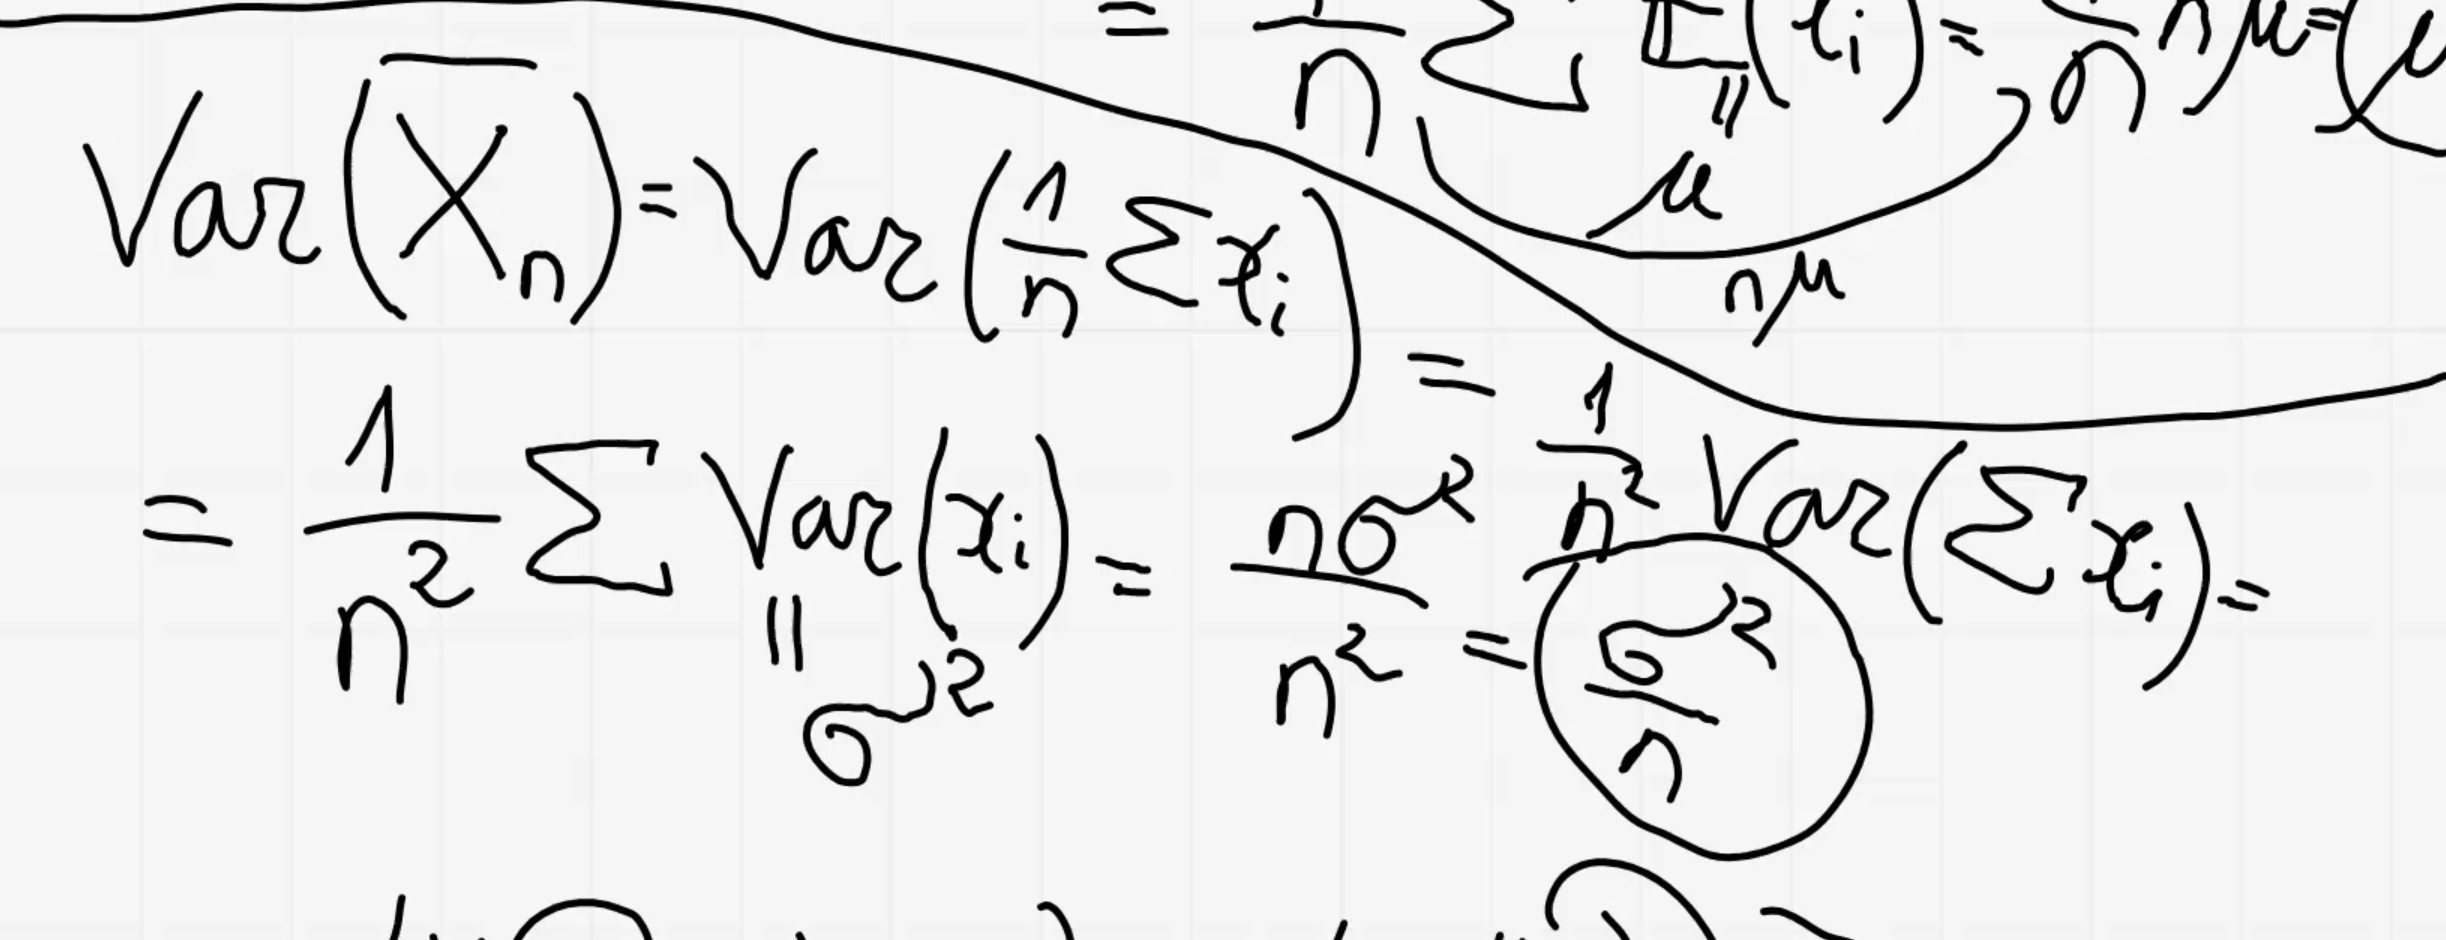 = 1/n Σ E(xᵢ) = 1/n nμ = μ
‖
μ
nμ
Var(X̅ₙ) = Var(1/n Σ xᵢ) = 1/n² Var(Σ xᵢ) =
= 1/n² Σ Var(xᵢ) = nσ²/n² = σ²/n
‖
σ²